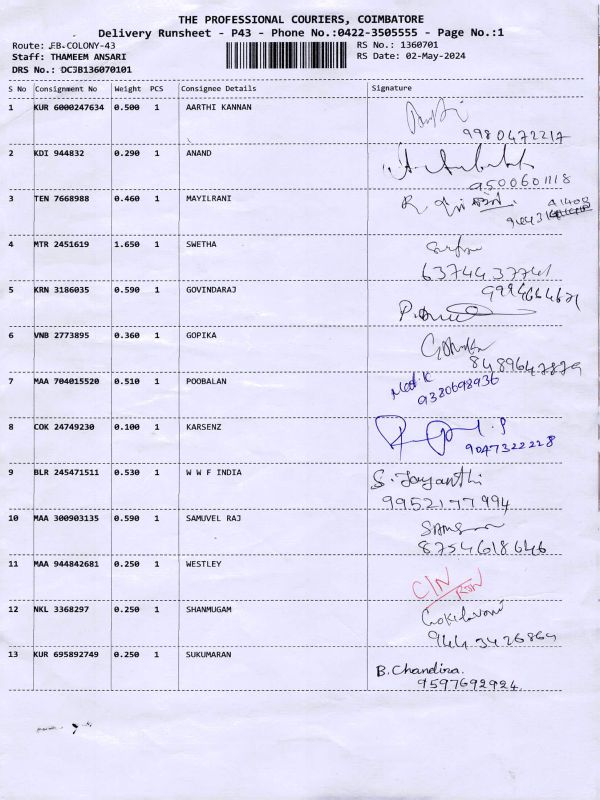 THE PROFESSIONAL COURIERS, COIMBATORE
Delivery Runsheet - P43 - Phone No.:0422-3505555 - Page No.:1
Route: EB-COLONY-43
RS No.: 1360701
Staff: THAMEEM ANSARI
RS Date: 02-May-2024
DRS No.: DCJB136070101
S No Consignment No Weight PCS Consignee Details Signature
1 KUR 6000247634 0.500 1 AARTHI KANNAN
9980472217
2 KDI 944832 0.290 1 ANAND
9500601118
3 TEN 7668988 0.460 1 MAYILRANI
4 MTR 2451619 1.650 1 SWETHA
6374437741
5 KRN 3186035 0.590 1 GOVINDARAJ
6 VNB 2773895 0.360 1 GOPIKA
8489647879
7 MAA 704015520 0.510 1 POOBALAN
9380698936
8 COK 24749230 0.100 1 KARSENZ
9047322228
9 BLR 245471511 0.530 1 W W F INDIA S. Jayanthi
9952177994
10 MAA 300903135 0.590 1 SAMUVEL RAJ
8754618646
11 MAA 944842681 0.250 1 WESTLEY
12 NKL 3368297 0.250 1 SHANMUGAM
13 KUR 695892749 0.250 1 SUKUMARAN B. Chandira.
9597692924